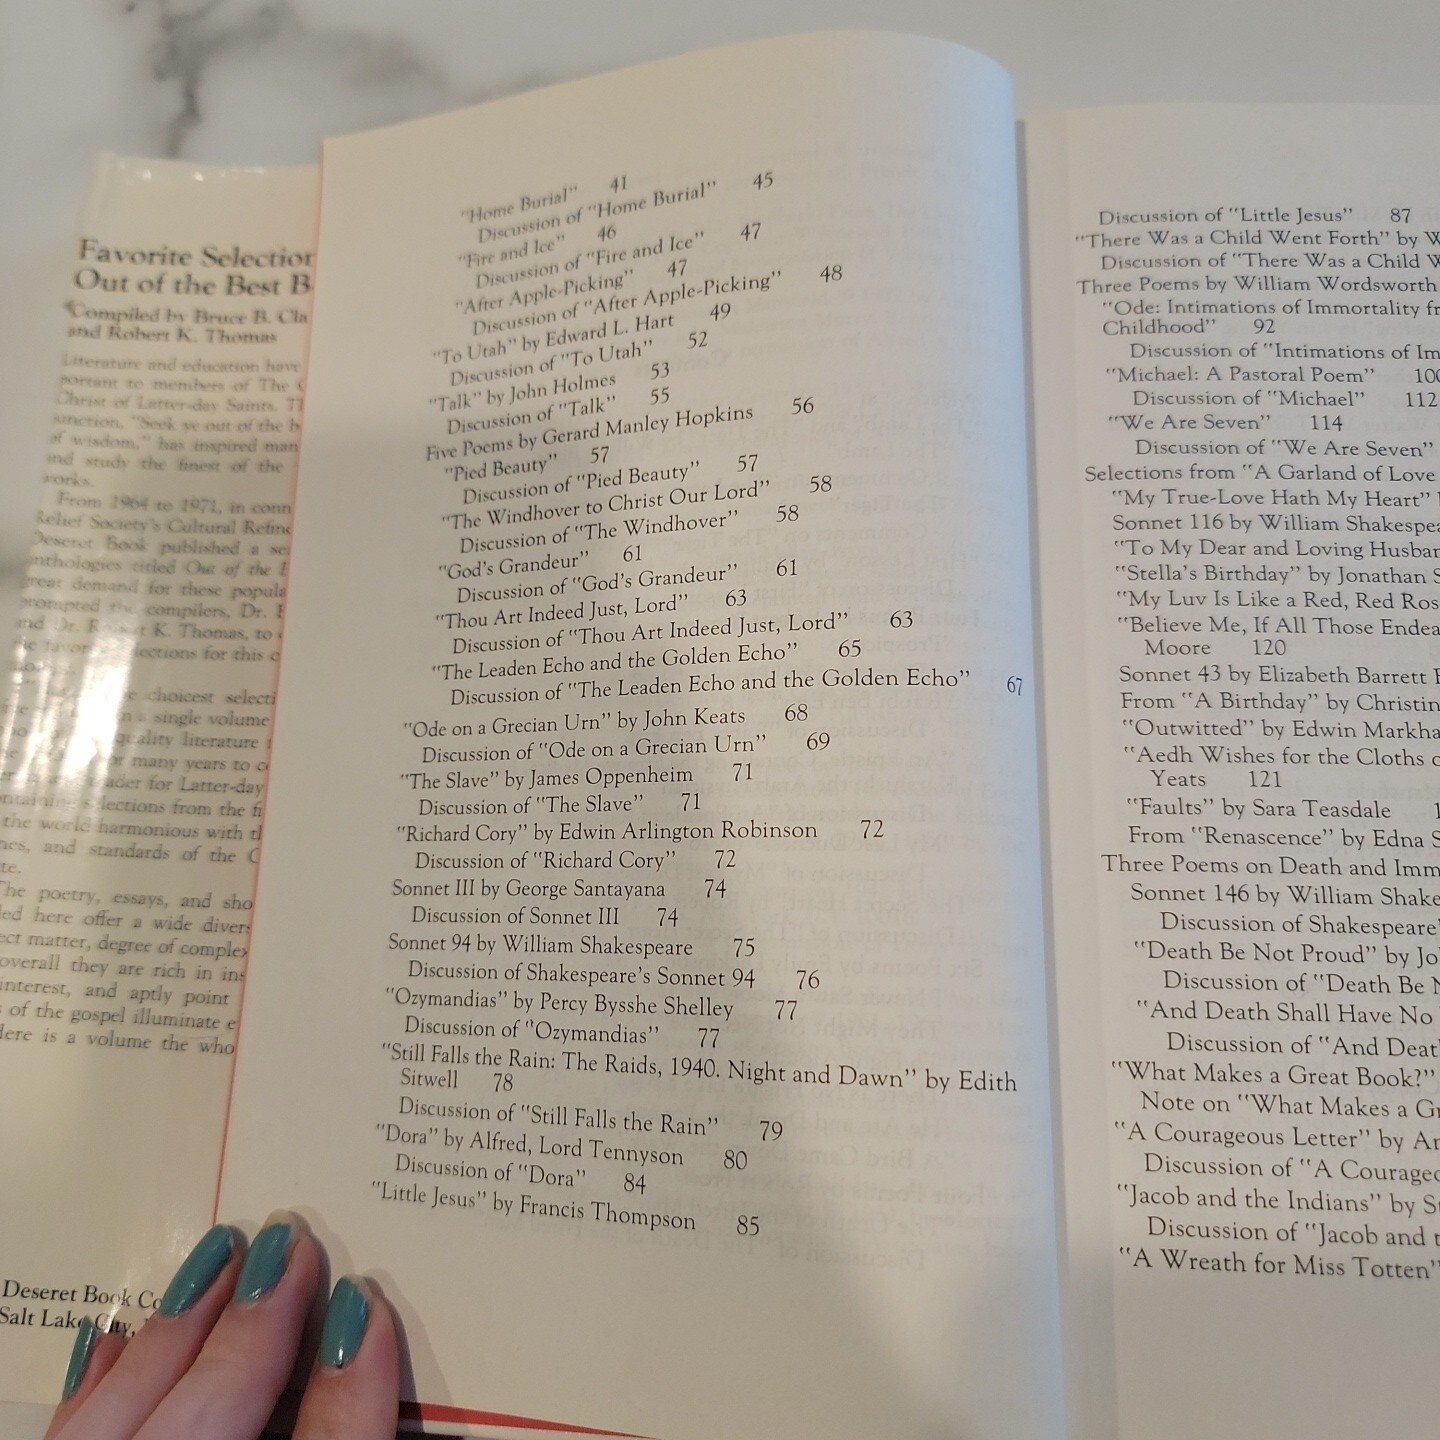 Favorite Selection
Out of the Best B
Compiled by Bruce B. Cla
and Robert K. Thomas
Literature and education have
portant to members of The
Christ of Latter-day Saints.
unction, "Seek ye out of the b
of wisdom," has inspired man
and study the finest of the
works.
From 1964 to 1971, in conn
Relief Society's Cultural Refine
Deseret Book published a se
nthologies titled Out of the
great demand for these popula
prompted the compilers, Dr.
and Dr. K. Thomas, to
lections for this
choicest selecti
single volume
quality literature
or many years to
der for Latter-day
lections from the fi
the world harmonious with
and standards of the
The poetry, essays, and sho
ed here offer a wide diver
ect matter, degree of complex
overall they are rich in ins
interest, and aptly point
of the gospel illuminate e
Here is a volume the who
Deseret Book Co
Salt Lake City,
"Home Burial" 41
Discussion of "Home Burial" 45
"Fire and Ice" 46
Discussion of "Fire and Ice" 47
"After Apple-Picking" 47
Discussion of "After Apple-Picking" 48
"To Utah" by Edward L. Hart 49
Discussion of "To Utah" 52
"Talk" by John Holmes 53
Discussion of "Talk" 55
Five Poems by Gerard Manley Hopkins 56
"Pied Beauty" 57
Discussion of "Pied Beauty" 57
"The Windhover to Christ Our Lord" 58
Discussion of "The Windhover" 58
"God's Grandeur" 61
Discussion of "God's Grandeur" 61
"Thou Art Indeed Just, Lord" 63
Discussion of "Thou Art Indeed Just, Lord" 63
"The Leaden Echo and the Golden Echo" 65
Discussion of "The Leaden Echo and the Golden Echo" 67
"Ode on a Grecian Urn" by John Keats 68
Discussion of "Ode on a Grecian Urn" 69
"The Slave" by James Oppenheim 71
Discussion of "The Slave" 71
"Richard Cory" by Edwin Arlington Robinson 72
Discussion of "Richard Cory" 72
Sonnet III by George Santayana 74
Discussion of Sonnet III 74
Sonnet 94 by William Shakespeare 75
Discussion of Shakespeare's Sonnet 94 76
"Ozymandias" by Percy Bysshe Shelley 77
Discussion of "Ozymandias" 77
"Still Falls the Rain: The Raids, 1940. Night and Dawn" by Edith
Sitwell 78
Discussion of "Still Falls the Rain" 79
"Dora" by Alfred, Lord Tennyson 80
Discussion of "Dora" 84
"Little Jesus" by Francis Thompson 85
Discussion of "Little Jesus" 87
"There Was a Child Went Forth" by W
Discussion of "There Was a Child W
Three Poems by William Wordsworth
"Ode: Intimations of Immortality fr
Childhood" 92
Discussion of "Intimations of Im
"Michael: A Pastoral Poem" 100
Discussion of "Michael" 112
"We Are Seven" 114
Discussion of "We Are Seven"
Selections from "A Garland of Love
"My True-Love Hath My Heart"
Sonnet 116 by William Shakespea
"To My Dear and Loving Husban
"Stella's Birthday" by Jonathan S
"My Luv Is Like a Red, Red Ros
"Believe Me, If All Those Endea
Moore 120
Sonnet 43 by Elizabeth Barrett
From "A Birthday" by Christin
"Outwitted" by Edwin Markha
"Aedh Wishes for the Cloths o
Yeats 121
"Faults" by Sara Teasdale 1
From "Renascence" by Edna S
Three Poems on Death and Imm
Sonnet 146 by William Shake
Discussion of Shakespeare'
"Death Be Not Proud" by Jo
Discussion of "Death Be N
"And Death Shall Have No
Discussion of "And Deat
"What Makes a Great Book?"
Note on "What Makes a Gr
"A Courageous Letter" by An
Discussion of "A Courageo
"Jacob and the Indians" by St
Discussion of "Jacob and t
"A Wreath for Miss Totten"